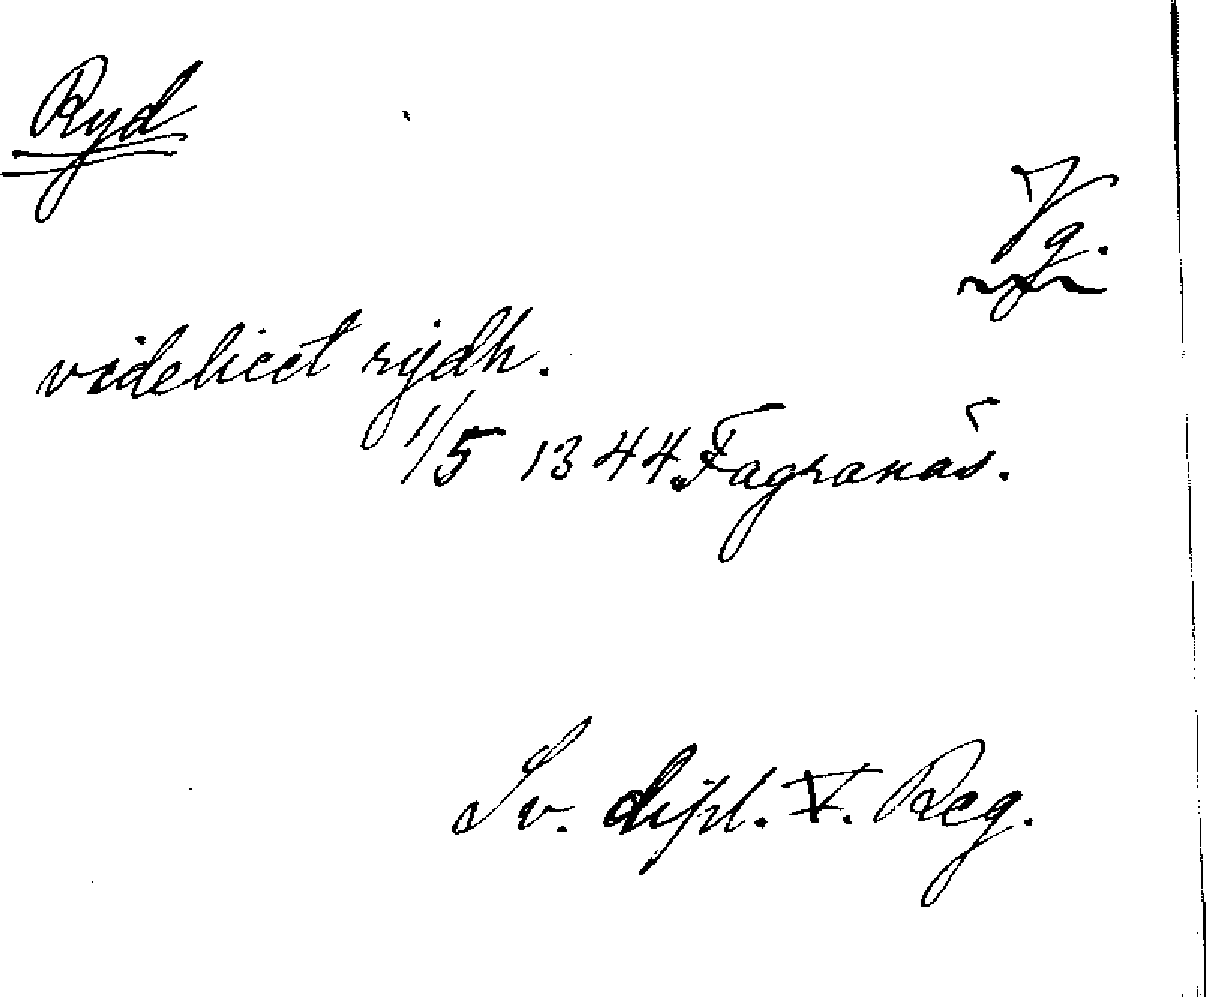 Ryd
Vg.
videlicet rydh.
1/5 1344. Fagranäs.
Sv. dipl. V. Reg.